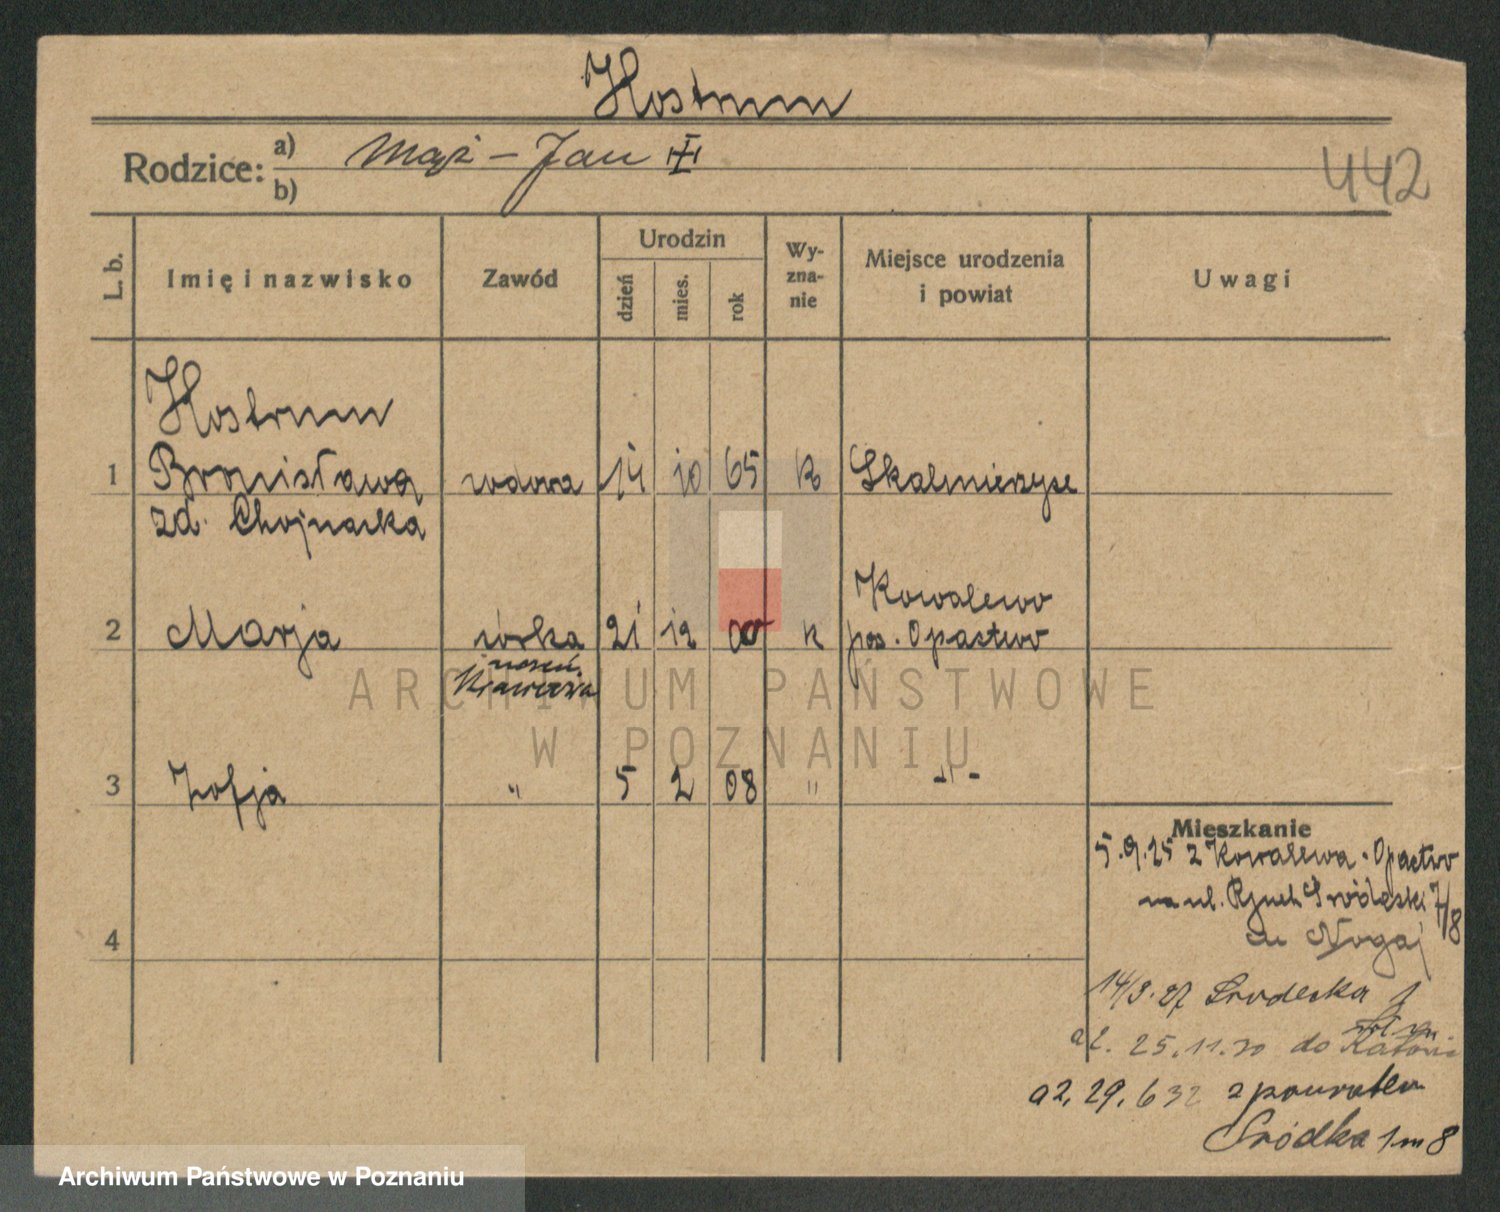 Hostrum
Rodzice: a) Mąż - Jan
b)
442
L. b.
Imię i nazwisko
Zawód
Urodzin
dzień
mies.
rok
Wy-
zna-
nie
Miejsce urodzenia
i powiat
Uwagi
Hostrum
1 Bronisława wdowa 14 10 65 k Skalmierzyce
zd. Chojnacka
Kowalewo
2 Marja córka 21 12 00 k pos. Opactwo
3 Zofja " 5 2 08 " -"-
Mieszkanie
5.9.25 z Kowalewa-Opactwo
na ul. Rynek Śródecki 7/8
Nogaj
4
14/9.27 Średecka 1
25.11.30 do
a2. 29.6 32 z powrotem
Śródka 1 m 8
ARCHIWUM PAŃSTWOWE
W POZNANIU
Archiwum Państwowe w Poznaniu